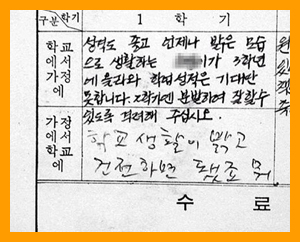 구분 학기
1 학 기
학교에서 가정에
성격도 좋고 언제나 밝은 모습
으로 생활하는 이가 3학년
에 올라와 학업성적은 기대만
못합니다. 2학기엔 분발하여 잘할 수
있도록 격려해 주십시오.
가정에서 학교에
학교 생활이 밝고
건전하면 됐죠 뭐
수 료